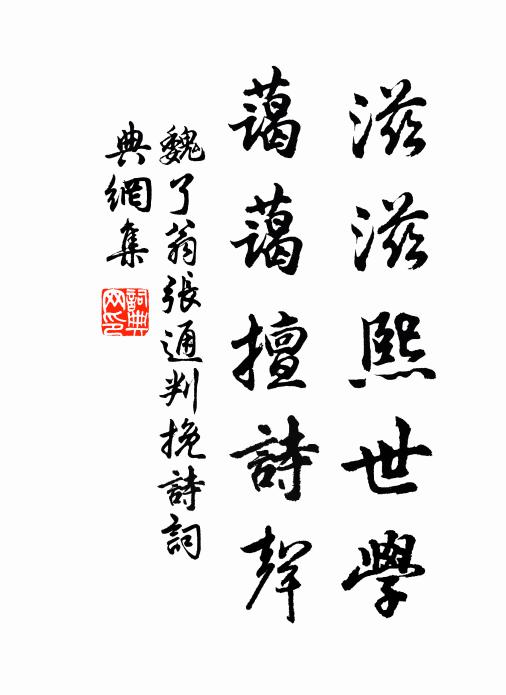 滋滋熙世學
藹藹擅詩聲
魏了翁張通判挽詩詞
典網集
詞典
網印